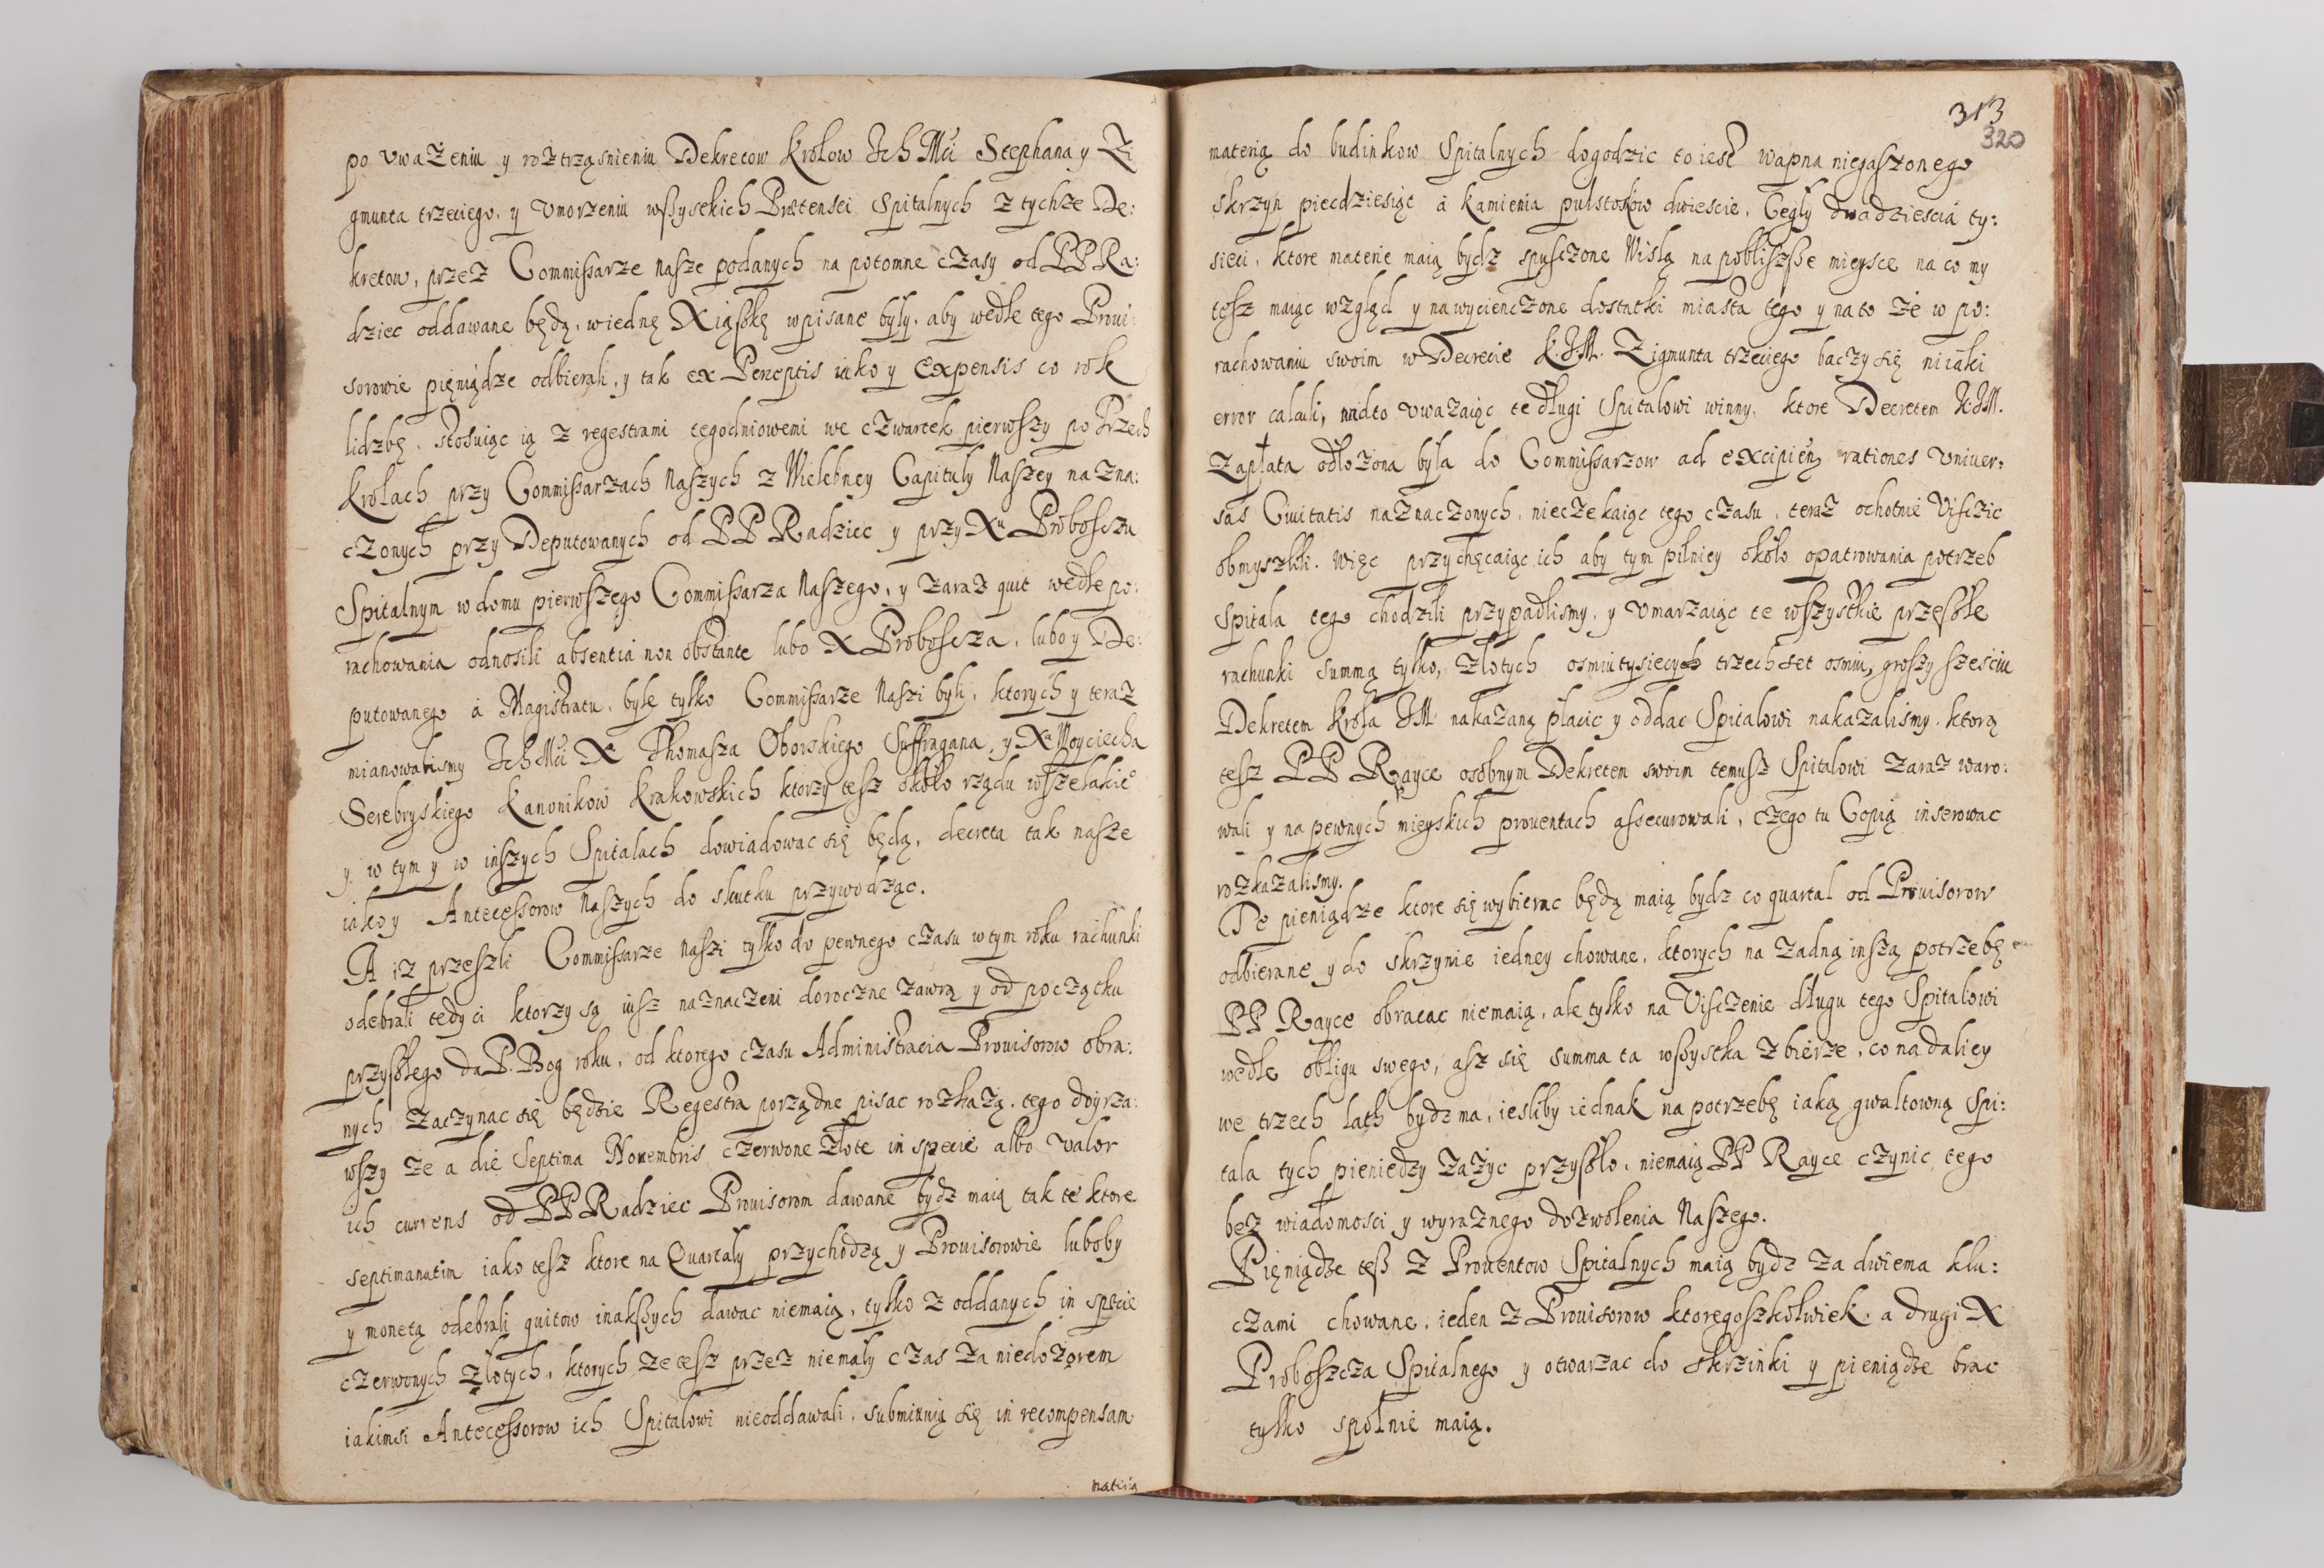 po uważeniu y roztrząsnieniu Dekretow Krolow Ich Mći Stephana y Zi
gmunta trzeciego, y umorzeniu wßysekich Prætensei Spitalnych z tychże De:
kretow, przez Commissarze nasze podanych na potomne czasy od PP Ra:
dziec oddawane będą, wiednę Xiąszkę wpisane były, aby wedle tego Proui:
sorowie pieniądze odbierali, y tak ex Perceptis iako y Expensis co rok
lidzbę, stosuiąc ią z regestrami tegodniowemi we czwartek pierwszy po Trzech
Krolach przy Commissarzach Naszych z Wielebney Capituły Naszey nazna:
czonych przy Deputowanych od PP Radziec y przy Xu Proboszczu
Spitalnym w domu pierwszego Commissarza Naszego, y zaraz quit wedle po:
rachowania odnosili absentia non obstante lubo X Proboszcza, lubo y De:
putowanego à Magistratu, byle tylko Commissarze Naszi byli, ktorych y teraz
mianowalismy Ich Mći Xa Thomasza Oborskiego Suffragana, y Xa Woyciecha
Serebryskiego Kanonikow Krakowskich ktorzy tesz około rządu wszelakieo
y w tym y w inszych Spitalach dowiadowac się będą, decreta tak nasze
iako y Antecessorow Naszych do skutku przywodząc.
A iz przeszli Commissarze Naszi tylko do pewnego czasu w tym roku rachunki
odebrali tedy ci ktorzy są iusz naznaczeni doroczne zawrą y od początku
przyszłego da P. Bog roku, od ktorego czasu Administracia Prouisorow obra:
nych zaczynac się będzie Regestra porządne pisac rozkażą, tego doyrza:
wszy że a die Septima Nouembris czerwone złote in specie albo valor
ich currens od PP Radziec Prouisorom dawane bydz maią tak te ktore
septimanatim iako tesz ktore na Quartały przychodzą y Prouisorowie luboby
y monetą odebrali quitow inakszych dawac niemaią, tylko z oddanych in specie
czerwonych złotych, ktorych że tesz przez niemały czas za niedozorem
iakimsi Antecessorow ich Spitalowi nieoddawali, submituią się in recompensam
materią
313
320
materią do budinkow Spitalnych dogodzic to iest wapna niegaszonego
skrzyn piecdziesiąc à kamienia pulstosow dwiescie, Cegły dwadziescia ty:
sieci, ktore materie maią bydz spusczone Wisłą na pobliszsze mieysce na co my
tesz maiąc wzgląd y na wycienczone dostatki miasta tego y na to że w po:
rachowaniu swoim w Decrecie K.J.M. Zigmunta trzeciego baczy się niiaki
error calculi, nadto uwazaiąc te długi Spitalowi winny, ktore Decretem K.J.M.
Zapłata odłożona była do Commissarzow ad excipien rationes uniuer:
sas Ciuitatis naznaczonych, nieczekaiąc tego czasu, teraz ochotnie uisczic
obmyszlili. Więc przychęcaiąc ich aby tym pilniey około opatrowania potrzeb
Spitala tego chodzili przypadlismy, y umarzaiąc te wszystkie przeszłe
rachunki summą tylko, złotych osmiutysiecych trzech set osmiu, groszy szesciu
Dekretem Krola JM nakazaną płacic y oddac Spitalowi nakazalismy, ktorą
tesz PP Rayce osobnym Dekretem swoim temusz Spitalowi zaraz waro:
wali y na pewnych mieyskich prouentach assecurowali, czego tu Copią inserowac
rozkazalismy.
Te pieniądze ktore się wybierac będą maią bydz co quartal od Prouisorow
odbierane y do skrzynie iedney chowane, ktorych na żadną inszą potrzebę
PP Rayce obracac niemaią, ale tylko na Uisczenie długu tego Spitalowi
wedle obligu swego, asz się summa ta wszystka zbierze, co nadaliey
we trzech lath bydz ma, iesliby iednak na potrzebę iaką gwaltowną Spi:
tala tych pieniedzy zażyc przyszło, niemaią PP Rayce czynic tego
bez wiadomosci y wyraznego dozwolenia Naszego.
Pieniądze teß z Prouentow Spitalnych maią bydz za dwiema klu:
czami chowane, ieden z Prouisorow ktoregoszkolwiek, a drugi X
Proboszcza Spitalnego y otwarzac do skrzinki y pieniądze brac
tylko społnie maią.